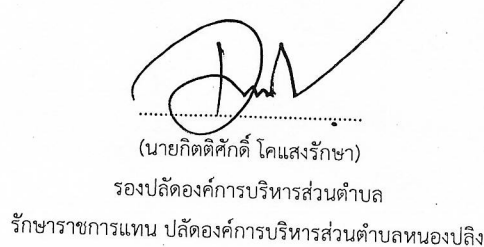 (นายกิตติศักดิ์ โคแสงรักษา)
รองปลัดองค์การบริหารส่วนตำบล
รักษาราชการแทน ปลัดองค์การบริหารส่วนตำบลหนองปลิง